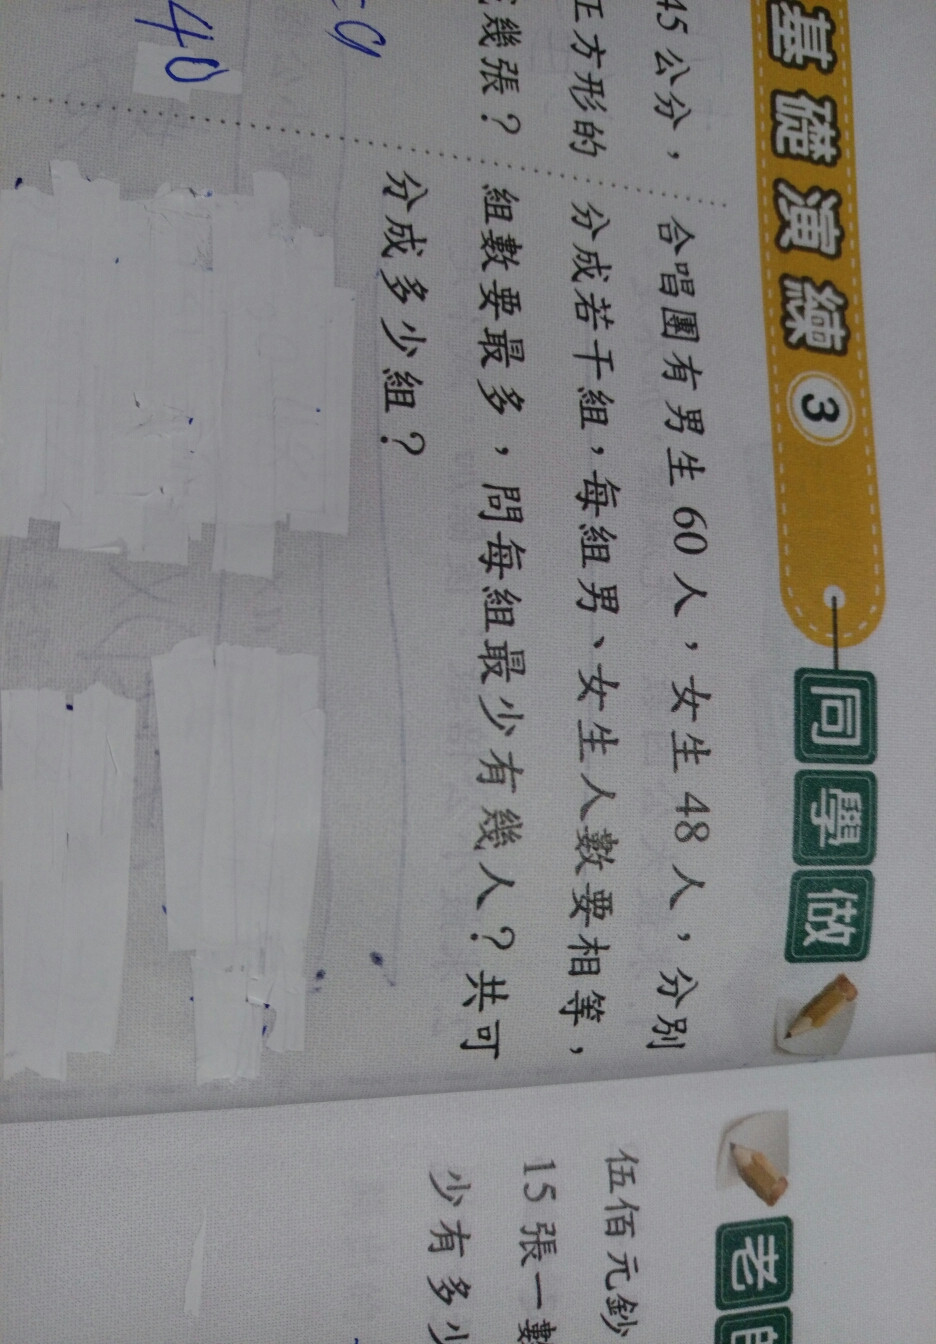 基礎演練 3 同學做
合唱團有男生 60 人，女生 48 人，分別
分成若干組，每組男、女生人數要相等，
組數要最多，問每組最少有幾人？共可
分成多少組？
45 公分，
正方形的
幾張？
=9
40
老
伍佰元鈔
15 張一數
少有多少